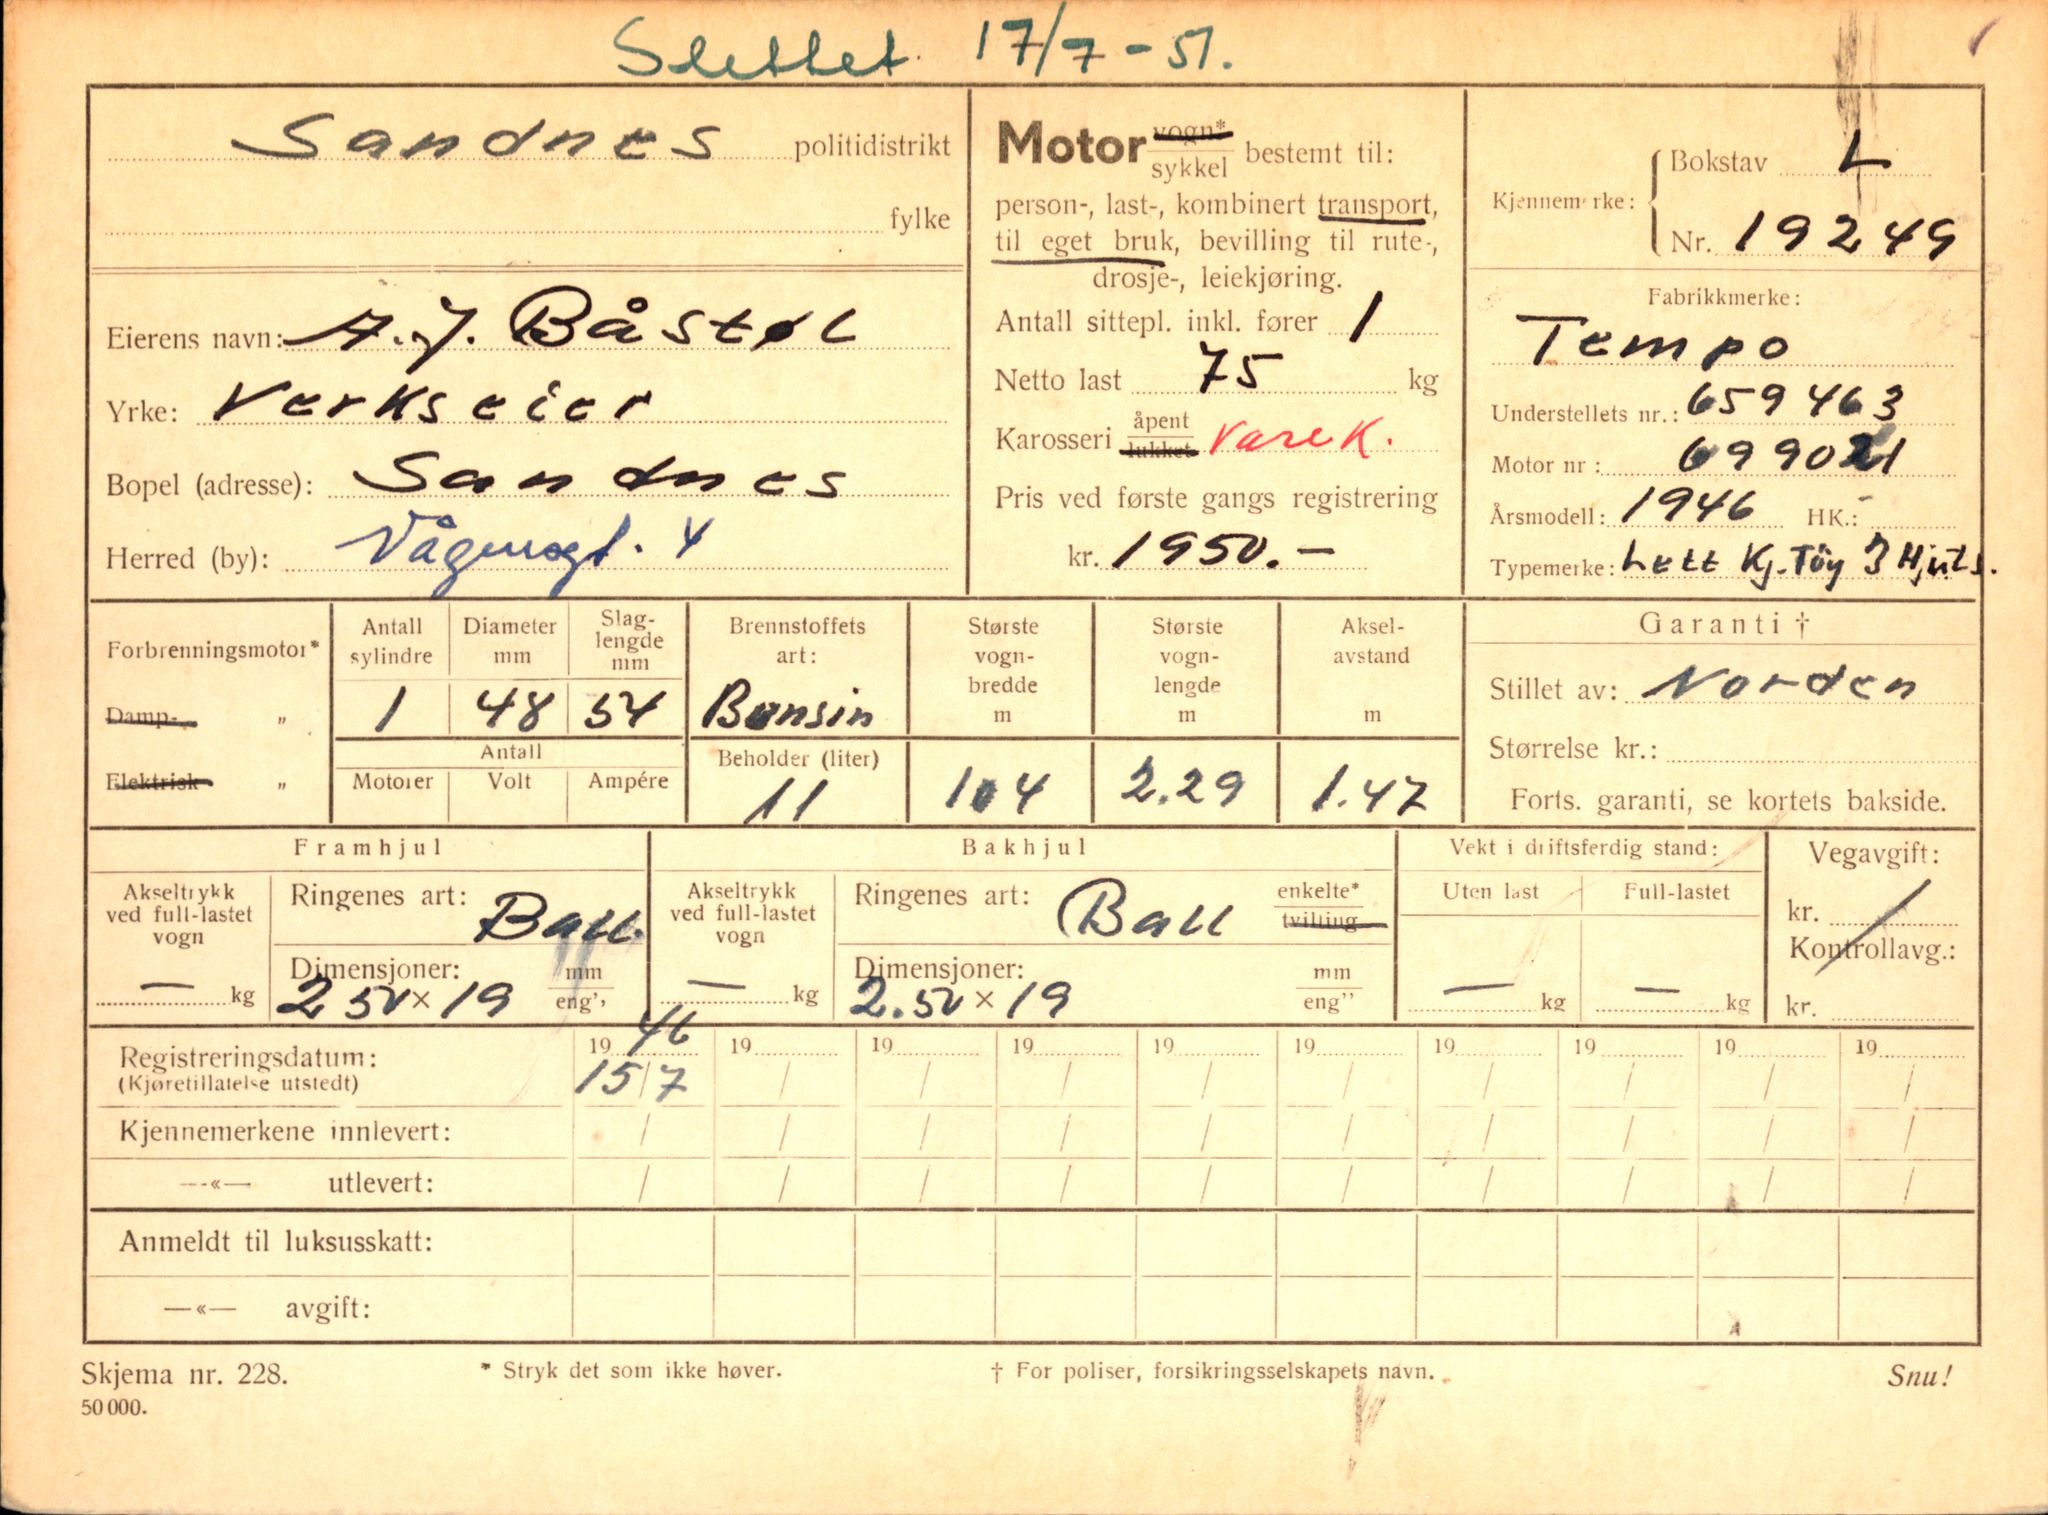 Slettet. 17/7-51.
Sandnes politidistrikt
fylke
Eierens navn: A.J. Båstøl
Yrke: Verkseier
Bopel (adresse): Sandnes
Herred (by): 4
Motor vogn*
sykkel bestemt til:
person-, last-, kombinert transport,
til eget bruk, bevilling til rute-,
drosje-, leiekjøring.
Antall sittepl. inkl. fører 1
Netto last 75 kg
Karosseri åpent
lukket Varek.
Pris ved første gangs registrering
kr. 1950.—
Kjennemerke: Bokstav L
Nr. 19249
Fabrikkmerke:
Tempo
Understellets nr.: 659463
Motor nr:
Årsmodell: 1946 HK.: -
Typemerke: Lett Kj.Töy 3 Hjuls.
Forbrenningsmotor*
Damp- „
Elektrisk „
Antall
sylindre
1
Diameter
mm
48
Slag-
lengde
mm
54
Antall
Motorer Volt Ampére
Brennstoffets
art:
Bensin
Beholder (liter)
11
Største
vogn-
bredde
m
104
Største
vogn-
lengde
m
2.29
Aksel-
avstand
m
1.47
Garanti †
Stillet av: Norden
Størrelse kr.:
Forts. garanti, se kortets bakside.
Framhjul
Akseltrykk
ved full-lastet
vogn
— kg
Ringenes art: Ball.
Dimensjoner: mm
2 50 × 19 eng''
Bakhjul
Akseltrykk
ved full-lastet
vogn
— kg
Ringenes art: Ball enkelte*
tvilling
Dimensjoner: mm
2.50 × 19 eng''
Vekt i driftsferdig stand:
Uten last Full-lastet
— kg — kg
Vegavgift:
kr.
Kontrollavg.:
kr.
Registreringsdatum: 1946 19 19 19 19 19 19 19 19 19
(Kjøretillatelse utstedt) 15/7 / / / / / / / / /
Kjennemerkene innlevert: / / / / / / / / / /
—«— utlevert: / / / / / / / / / /
Anmeldt til luksusskatt:
—«— avgift:
Skjema nr. 228. * Stryk det som ikke høver. † For poliser, forsikringsselskapets navn. Snu!
50 000.